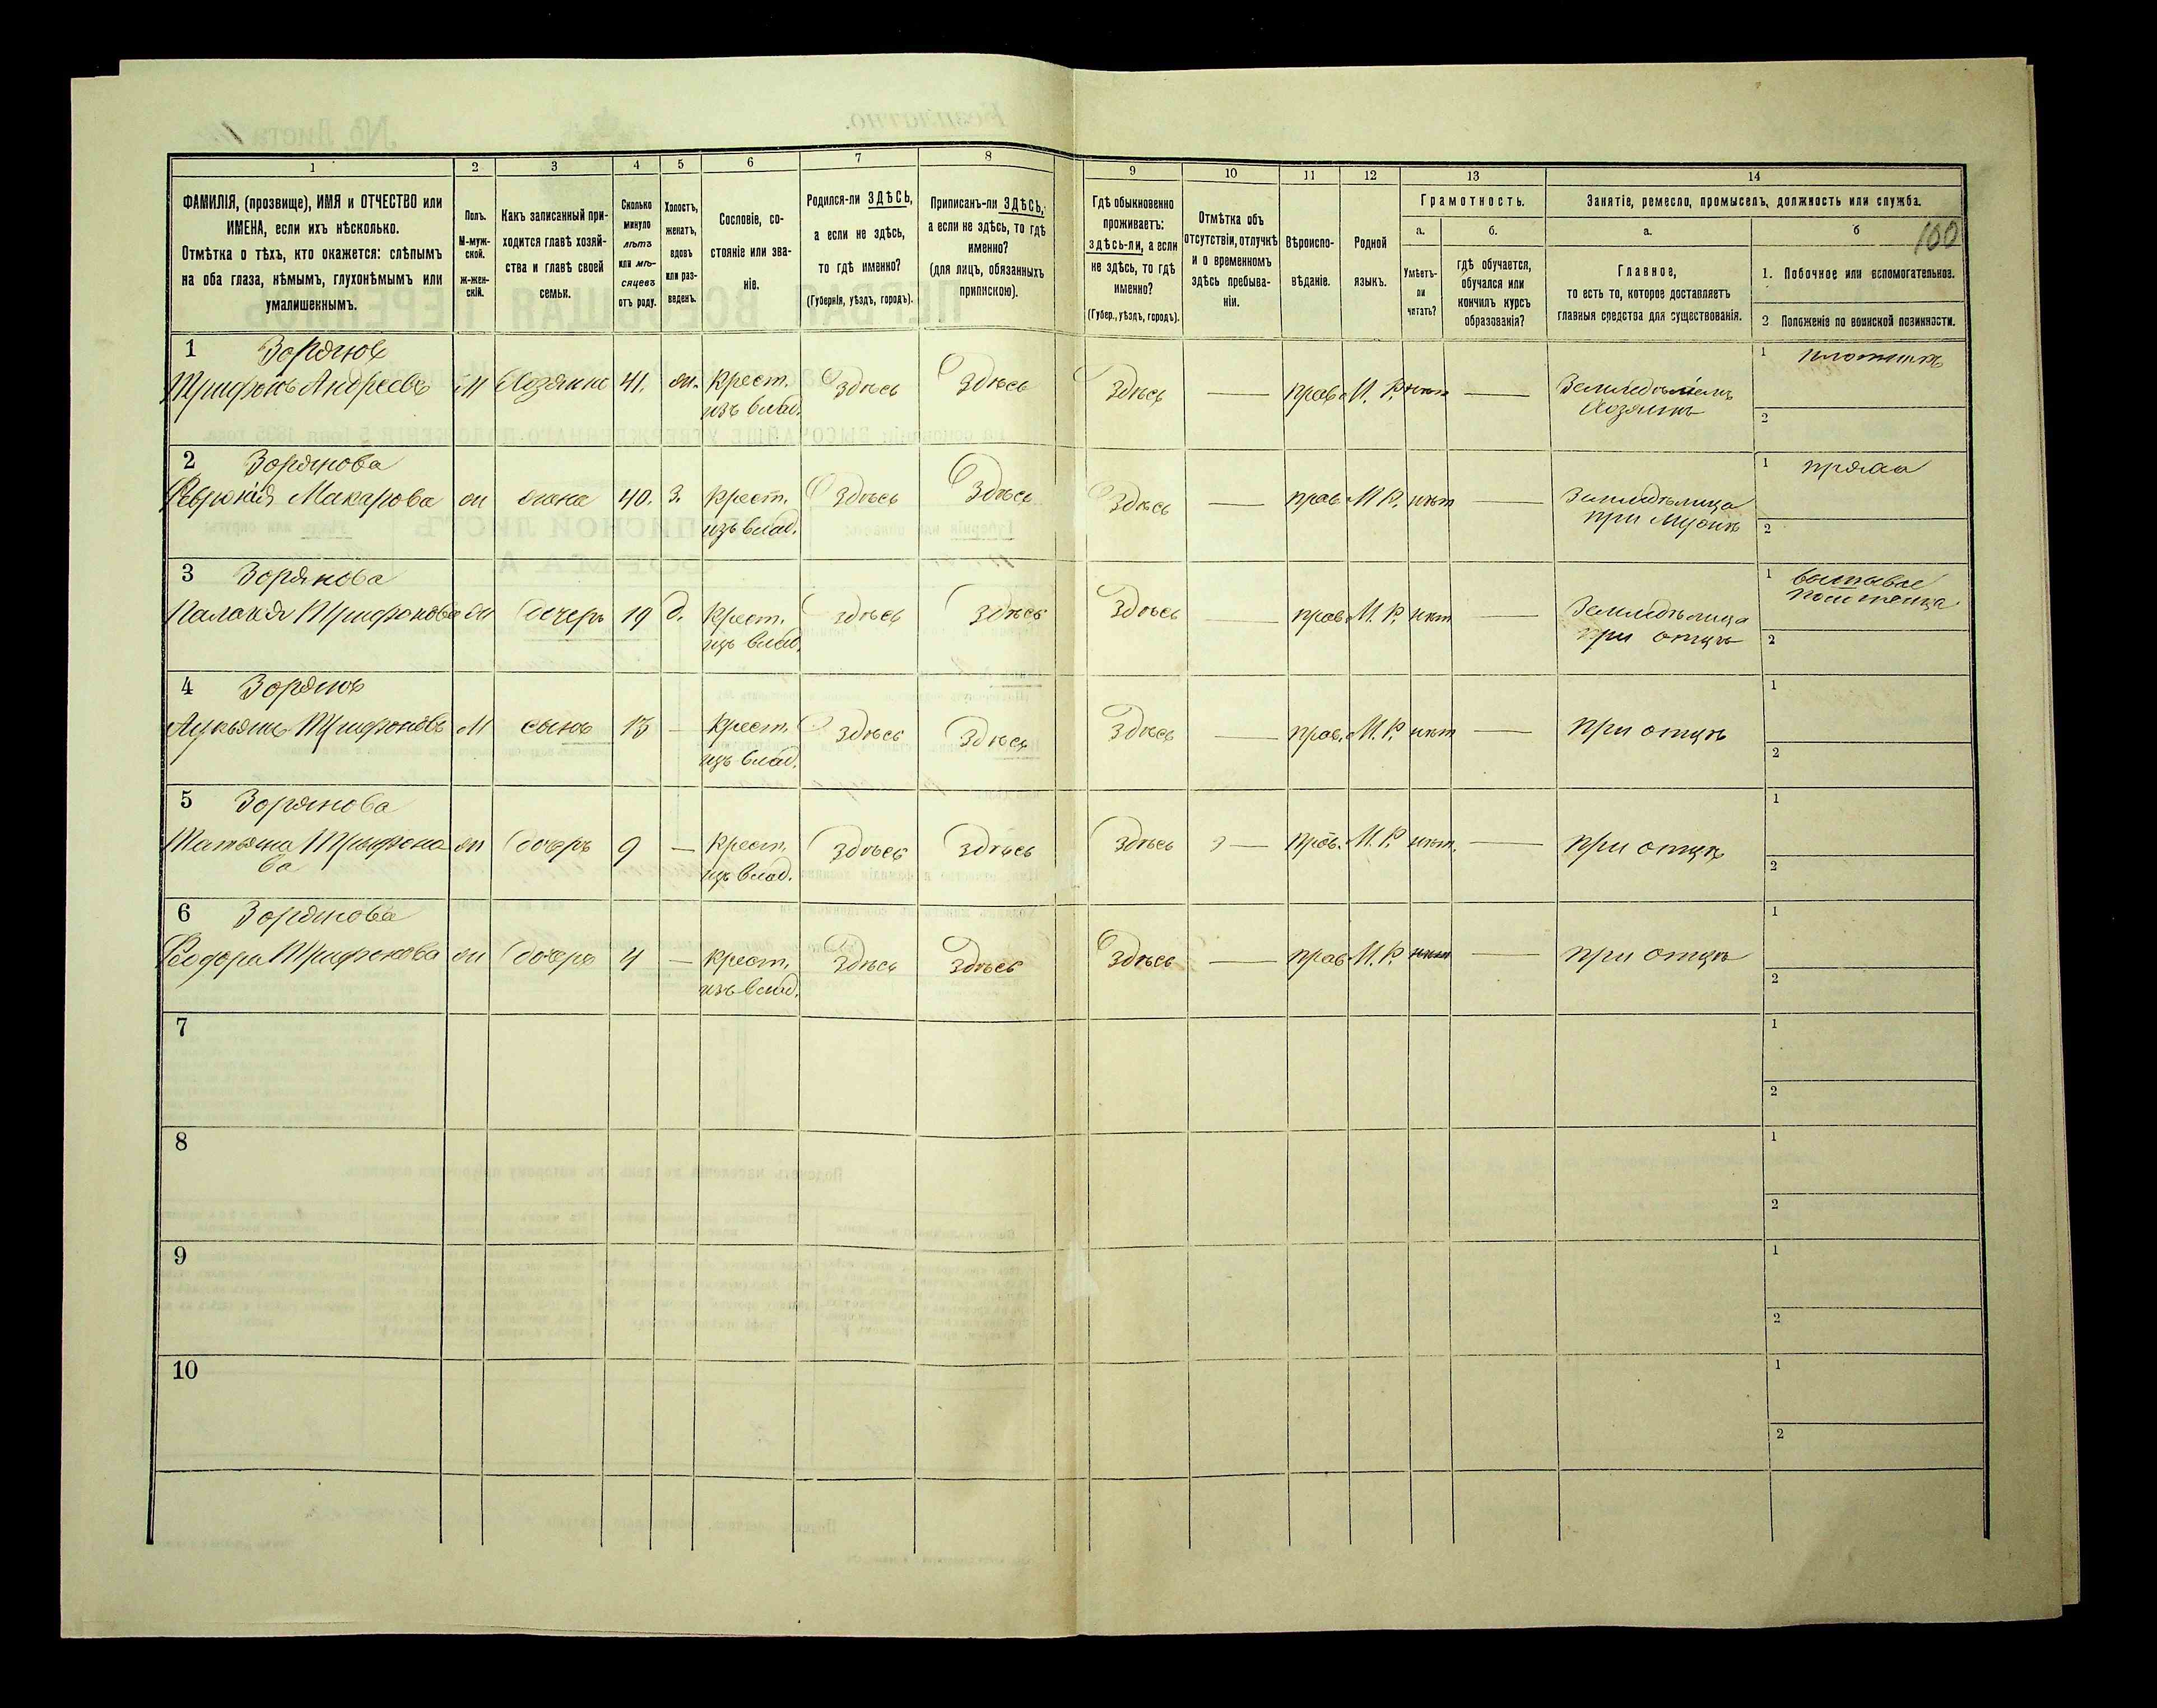 1 2 3 4 5 6 7 8 9 10 11 12 13 14
ФАМИЛІЯ, (прозвище), ИМЯ и ОТЧЕСТВО или
ИМЕНА, если ихъ нѣсколько.
Отмѣтка о тѣхъ, кто окажется: слѣпымъ
на оба глаза, нѣмымъ, глухонѣмымъ или
умалишеннымъ.
Полъ.
М-муж-
ской.
Ж-жен-
скій.
Какъ записанный при-
ходится главѣ хозяй-
ства и главѣ своей
семьи.
Сколько
минуло
лѣтъ
или мѣ-
сяцевъ
отъ роду.
Холостъ,
женатъ,
вдовъ
или раз-
веденъ.
Сословіе, со-
стояніе или зва-
ніе.
Родился-ли ЗДѢСЬ,
а если не здѣсь,
то гдѣ именно?
(Губернія, уѣздъ, городъ).
Приписанъ-ли ЗДѢСЬ,
а если не здѣсь, то гдѣ
именно?
(для лицъ, обязанныхъ
припискою).
Гдѣ обыкновенно
проживаетъ:
здѣсь-ли, а если
не здѣсь, то гдѣ
именно?
(Губер., уѣздъ, городъ).
Отмѣтка объ
отсутствіи, отлучкѣ
и о временномъ
здѣсь пребыва-
ніи.
Вѣроиспо-
вѣданіе.
Родной
языкъ.
Грамотность.
а.
Умѣетъ-
ли
читать?
б.
гдѣ обучается,
обучался или
кончилъ курсъ
образованія?
Занятіе, ремесло, промыселъ, должность или служба.
а.
Главное,
то есть то, которое доставляетъ
главныя средства для существованія.
б
100
1. Побочное или вспомогательное.
2 Положеніе по воинской повинности.
1 Зорянов
Трифонъ Андреевъ М Хозяинъ 41. Крест. Здѣсь Здѣсь Здѣсь — прав. М. Р. нѣтъ — Земледѣлецъ 1 плотникъ
изъ влад. Хозяинъ 2
2 Зорянова
Макарова жена 40. З. Крест. Здѣсь Здѣсь Здѣсь — прав. М. Р. нѣт — Земледѣлица 1 пряха
изъ влад. при мужѣ 2
3 Зорянова
Трифонова дочерь 19 д. Крест. здѣсь Здѣсь Здѣсь — прав. М. Р. нѣт — Земледѣлица 1
изъ влад. при отцѣ 2
4 Зорянов
Лукьянъ Трифоновъ М сынъ — Крест. Здѣсь Здѣсь Здѣсь — прав. М. Р. нѣт — при отцѣ 1
изъ влад. 2
5 Зорянова
Татьяна Трифоно дочерь 9 — Крест. Здѣсь Здѣсь Здѣсь — прав. М. Р. нѣт. — при отцѣ 1
ва изъ влад. 2
6 Зорянова
Трифонова дочерь 4 — Крест. Здѣсь Здѣсь Здѣсь — прав. М. Р. нѣт — при отцѣ 1
изъ влад. 2
7 1
2
8 1
2
9 1
2
10 1
2